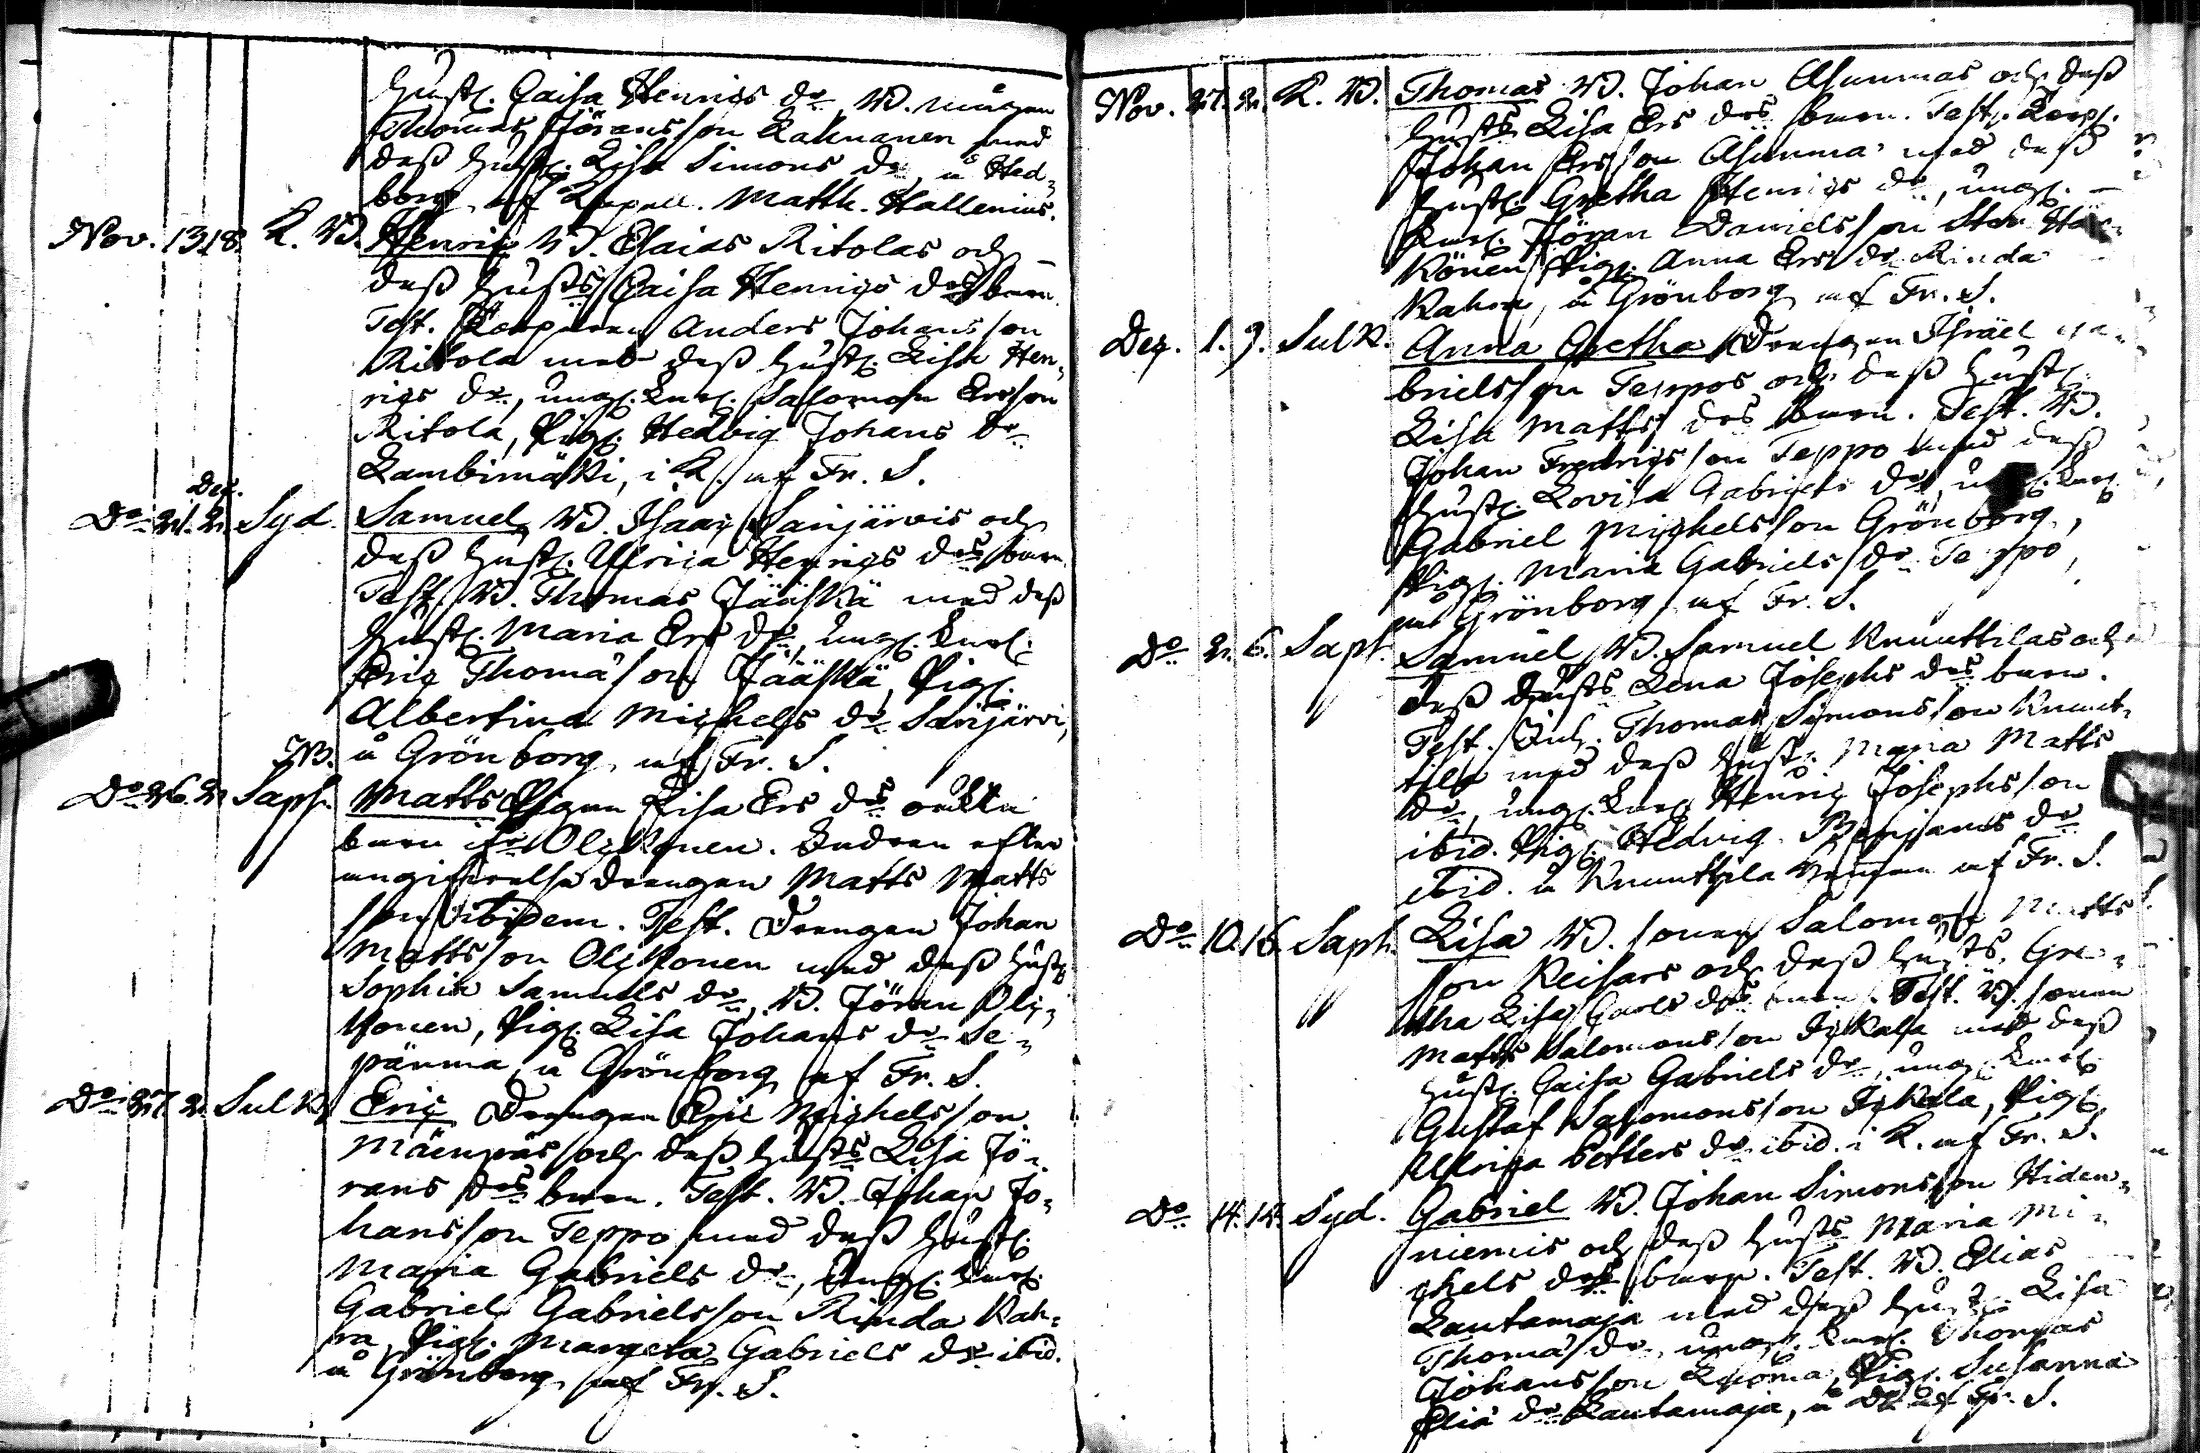 hust. Caisa Henrics dr, Bd. mågen
Thomas Jöransson Kahranen med
dess hust. Lisa Simons dr, å Hed-
borg af Kapell. Matth. Hallenius.
Nov. 13. 18. K. Bd. Henric Bd. Esaias Ritolas och
dess husts Caisa Henrics drs barn.
Test. Anders Johansson
Ritola med dess hust. Lisa Hen-
rics dr, ung. Karl. Salomon Ersson
Ritola, Pig. Hedvig Johans dr
Lambimäki, i K. af Fr. S.
Dec.
Do 21. 2. Syd. Samuel Bd. Isaac Sarijärvis och
dess hust. Ulrica Henrics drs barn.
Test. Bd. Thomas Jääskä med dess
hust. Maria Ers dr, ung. Karl.
Eric Thomasson Jääskä, Pig.
Albertina Michels dr Sarijärvi,
NB. å Grönborg af Fr. S.
Do 26. 2. Saph. Matts Pigan Lisa Ers drs oäkta
barn ifr. Olkkonen. Fadren efter
angifvelse drengen Matts Matts
son ibidem. Test. Drengen Johan
Mattsson Olkkonen med dess hust.
Sophia Samuels dr, Bd. Jöran Olk-
konen, Pig. Lisa Johans dr Se-
pänmaa, å Grönborg af Fr. S.
Do 27. 2. Sulk. Eric Drengen Eric Michelsson
Mäenpäs och dess husts Lisa Jö-
rans drs barn. Test. Bd. Johan Jo-
hansson Teppo med dess hust.
Maria Gabriels dr, Ung. Karl.
Gabriel Gabrielsson Rinda Kah-
ra, Pig. Margeta Gabriels dr ibid.
å Grönborg af Fr. S.
Nov. 27. 2. K. Bd. Thomas Bd. Johan Asunmas och dess
husts Lisa Ers drs barn. Test.
Johan Ersson Asunma med dess
hust. Gretha Henrics dr, ung.
Karl. Jöran Danielsson Här-
könen, Pig. Anna Ers dr Rinda
Kahra, å Grönborg af Fr. S.
Dec. 1. 9. Sulk. Anna Gretha Drengen Israel Ga-
brielsson Teppos och dess hust.
Lisa Matts drs barn. Test. Bd.
Johan Fredricsson Teppo med dess
hust. Lovisa Gabriels dr, ung. Karl.
Gabriel Michelsson Grönborg,
Pig. Maria Gabriels dr Teppo,
på Grönborg af Fr. S.
Do 2. 6. Saph. Samuel Bd. Samuel Knuuttilas och
dess husts Lena Josephs drs barn.
Test. Inh. Thomas Simonsson Knuut-
tila med dess hust. Maria Matts
dr, ung. Karl. Henric Josephsson
ibid. Pig. Hedvig Benjams dr
ibid. å Knuuttila af Fr. S.
Do 10. 16. Saph. Lisa Bd. sonen Salomon Matts
son Keisars och dess husts, Gre-
tha Lisa Carls drs barn. Test. Bd. sonen
Matts Salomonsson Jykala med dess
hust. Caisa Gabriels dr, ung. Karl.
Gustaf Salomonsson Jykala, Pig.
Ulrica Petters dr ibid. i K. af Fr. S.
Do 14. 14. Syd. Gabriel Bd. Johan Simonsson Hiden-
niemis och dess husts Maria Mi-
chels drs barn. Test. Bd. Elias
Lautamaja med dess hust. Lisa
Thomas dr, ung. Karl. Thomas
Johansson Luoma, Pig. Susanna
Elia dr Lautamaja, å Do af Fr. S.